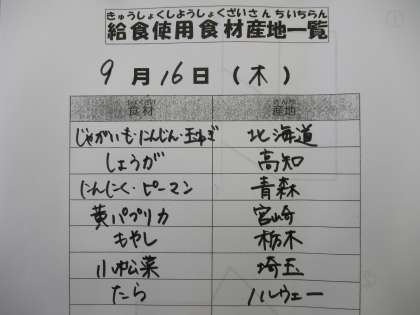 きゅうしょくしようしょくざいさんちいちらん
給食使用食材産地一覧
9月16日（木）
食材 産地
じゃがいも・にんじん・玉ねぎ 北海道
しょうが 高知
にんにく・ピーマン 青森
黄パプリカ 宮崎
もやし 栃木
小松菜 埼玉
たら ノルウェー